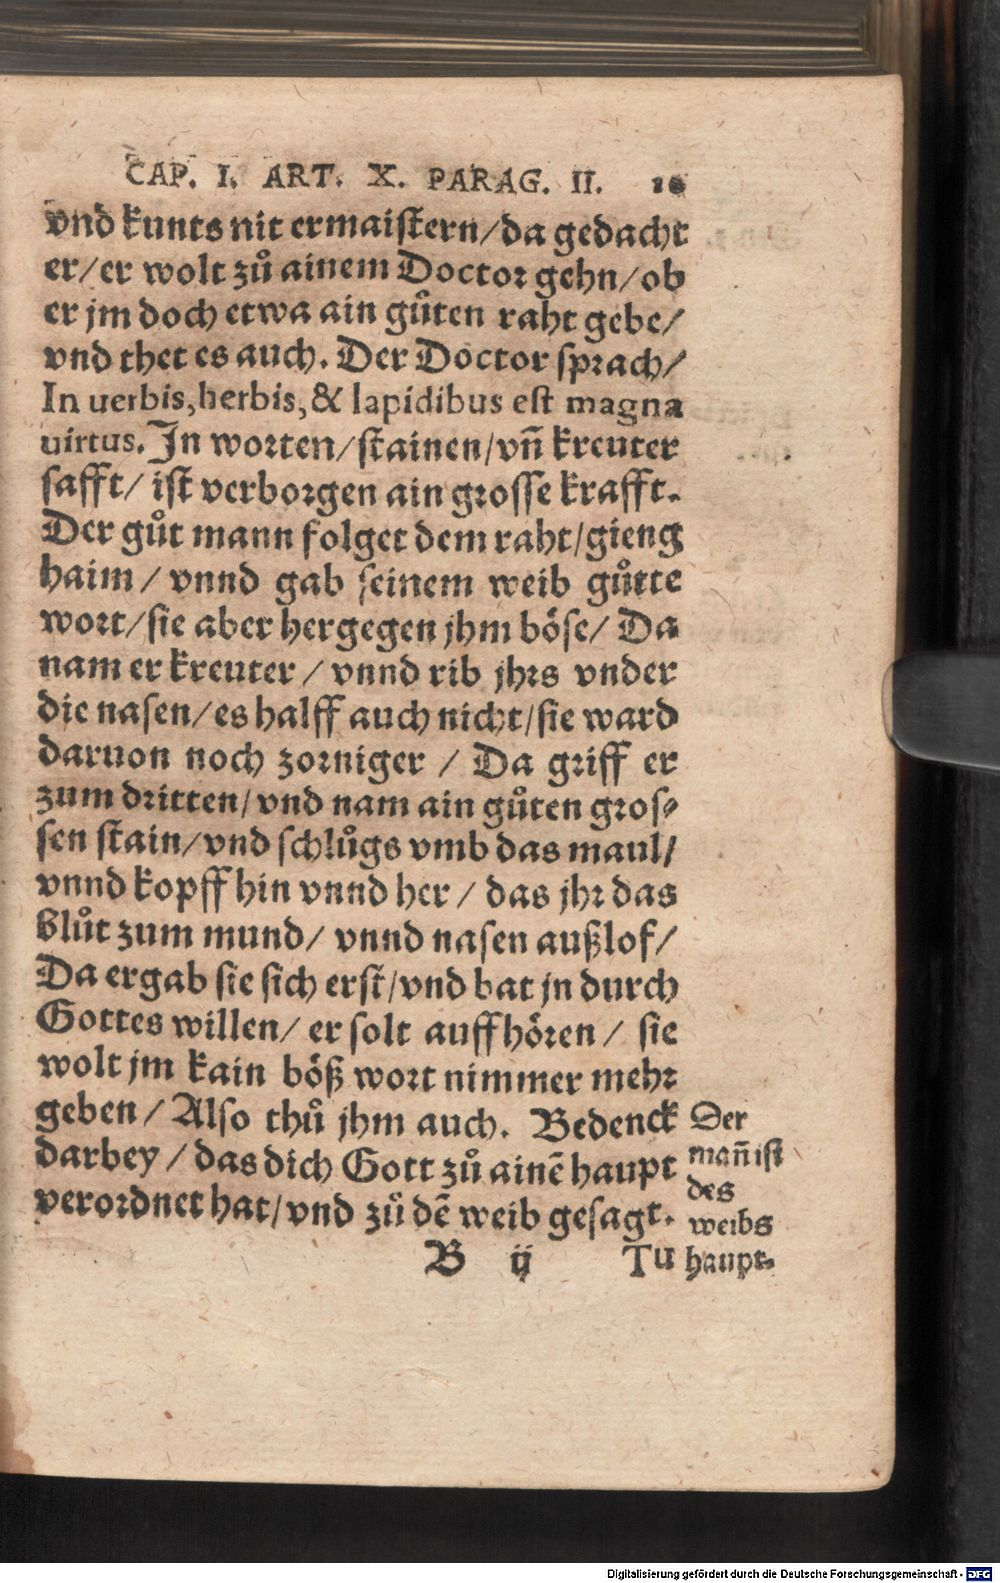 CAP. I. ART. X. PARAG. II. 10
vnd kunts nit ermaistern/da gedacht
er/er wolt zů ainem Doctor gehn/ob
er jm doch etwa ain gůten raht gebe/
vnd thet es auch. Der Doctor sprach/
In uerbis, herbis, & lapidibus est magna
uirtus. In worten/stainen/vñ kreuter
safft/ ist verborgen ain grosse krafft.
Der gůt mann folget dem raht/gieng
haim / vnnd gab seinem weib gůtte
wort/sie aber hergegen jhm böse/ Da
nam er kreuter / vnnd rib jhrs vnder
die nasen/es halff auch nicht/sie ward
daruon noch zorniger / Da griff er
zum dritten/vnd nam ain gůten gros-
sen stain/vnd schlůgs vmb das maul/
vnnd kopff hin vnnd her / das jhr das
blůt zum mund/ vnnd nasen außlof/
Da ergab sie sich erst/vnd bat jn durch
Gottes willen/ er solt auffhören / sie
wolt jm kain böß wort nimmer mehr
geben / Also thů jhm auch. Bedenck
darbey / das dich Gott zů ainẽ haupt
verordnet hat/vnd zů dẽ weib gesagt.
Der
mañ ist
des
weibs
haupt.
B ij Tu
Digitalisierung gefördert durch die Deutsche Forschungsgemeinschaft - DFG